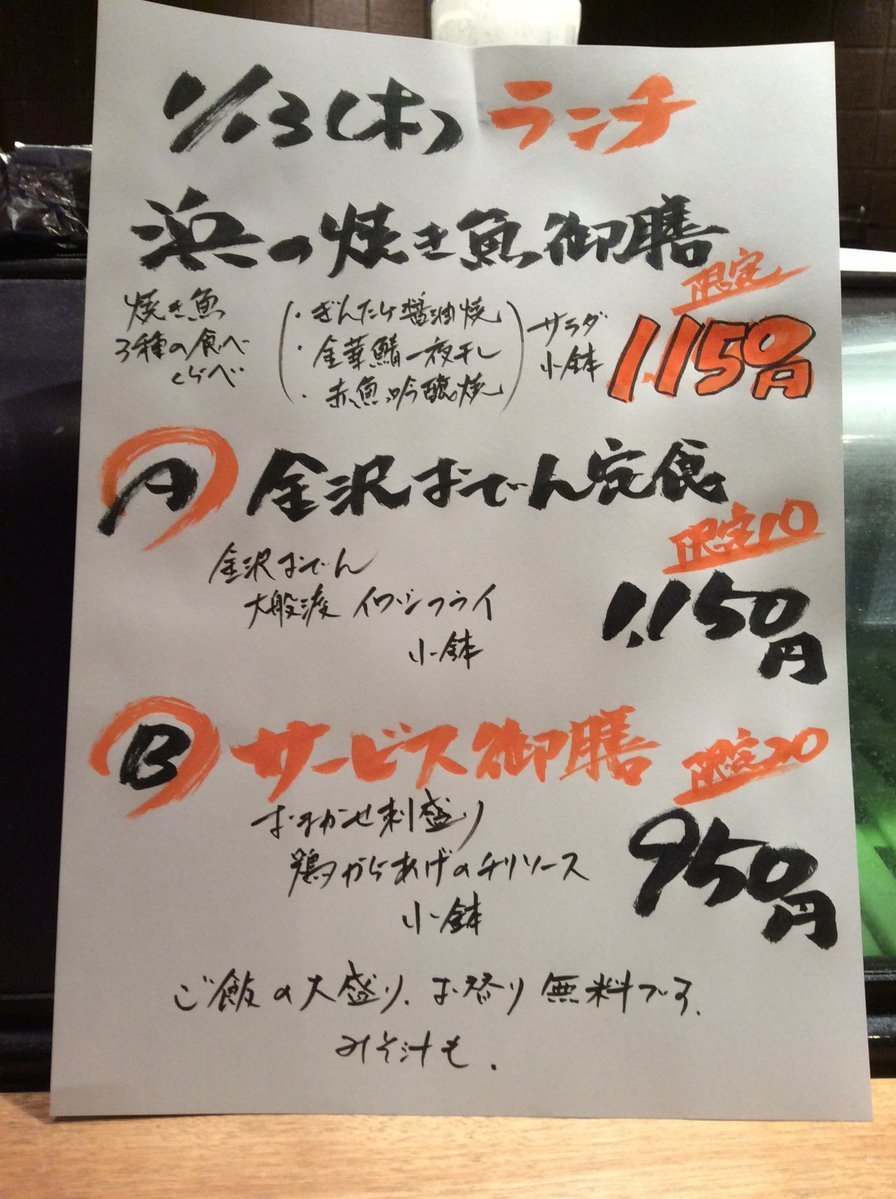 1/13(木) ランチ
浜の焼き魚御膳
限定
1,150円
焼き魚
3種の食べ
くらべ
・ぎんだら醤油焼
・金華鯖一夜干し
・赤魚吟醸焼
サラダ
小鉢
A 金沢おでん定食
限定10
1,150円
金沢おでん
大般渡 イワシフライ
小鉢
B サービス御膳
限定20
950円
おまかせ刺盛り
鶏からあげのチリソース
小鉢
ご飯の大盛り、お替り無料です。
みそ汁も.